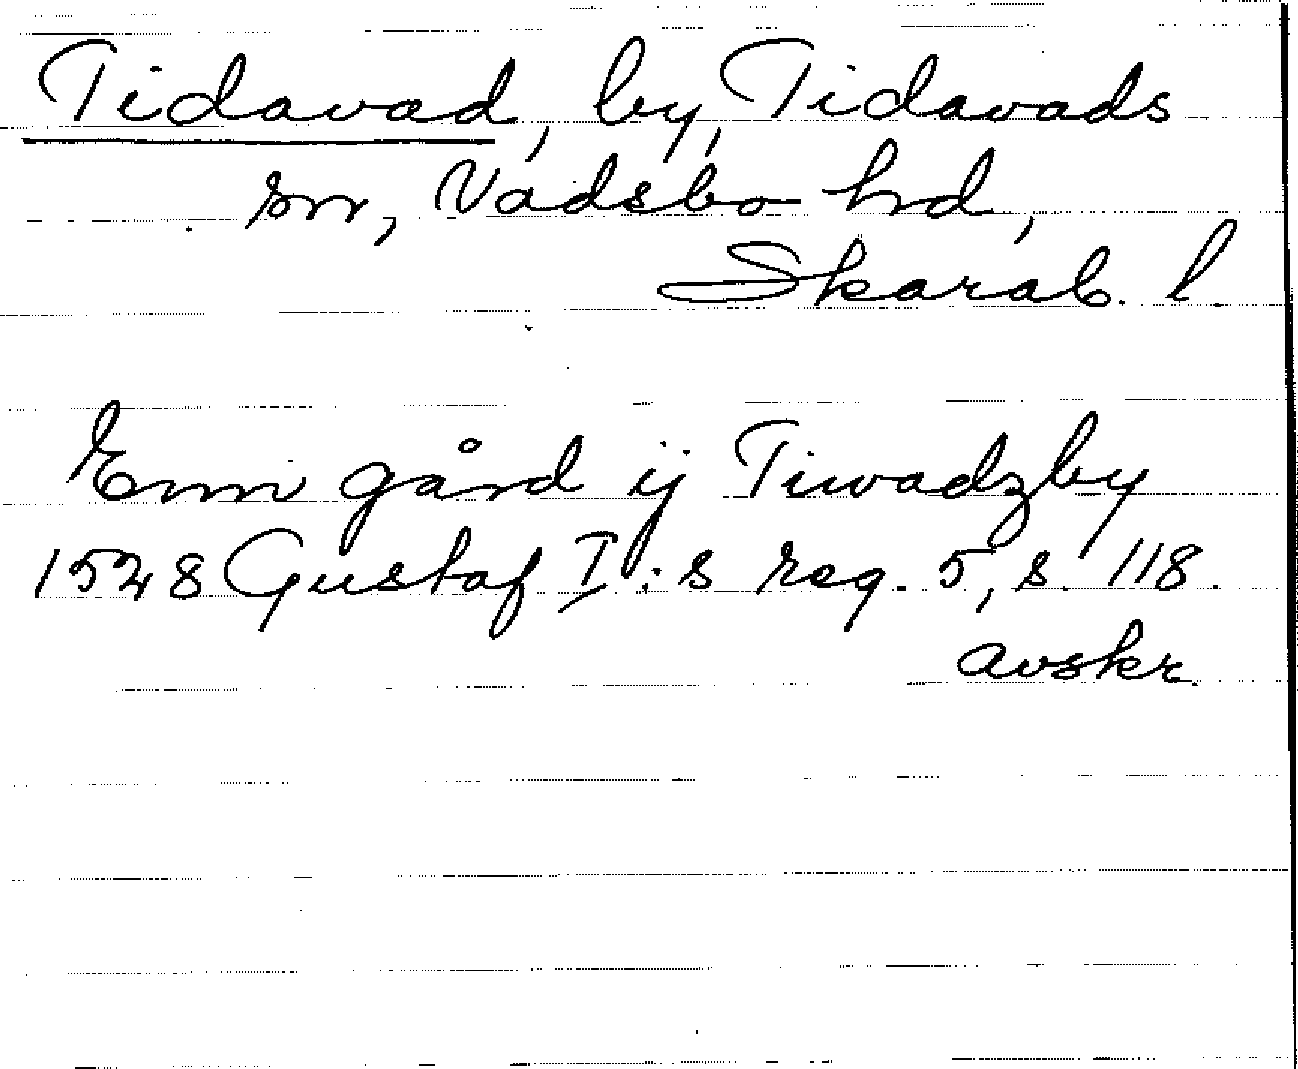 Tidavad, by, Tidavads
sn, Vadsbo hd,
Skarab. l.
Enn gård ij Tiwadzby
1528 Gustaf I:s reg. 5, s. 118.
avskr.